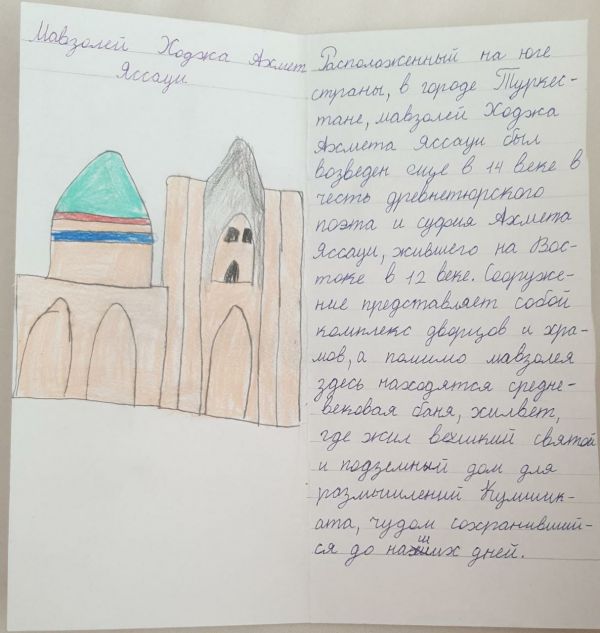 Мавзолей Ходжа Ахмет
Яссауи
Расположенный на юге
страны, в городе Туркес-
тане, мавзолей Ходжа
Ахмета Яссауи был
возведен еще в 14 веке в
честь древнетюрского
поэта и суфия Ахмета
Яссауи, жившего на Вос-
токе в 12 веке. Сооруже-
ние представляет собой
комплекс дворцов и хра-
мов, а помимо мавзолея
здесь находятся средне-
вековая баня, хилвет,
где жил великий святой
и подземный дом для
размышлений Кумшик-
ата, чудом сохранивший-
ся до наших дней.